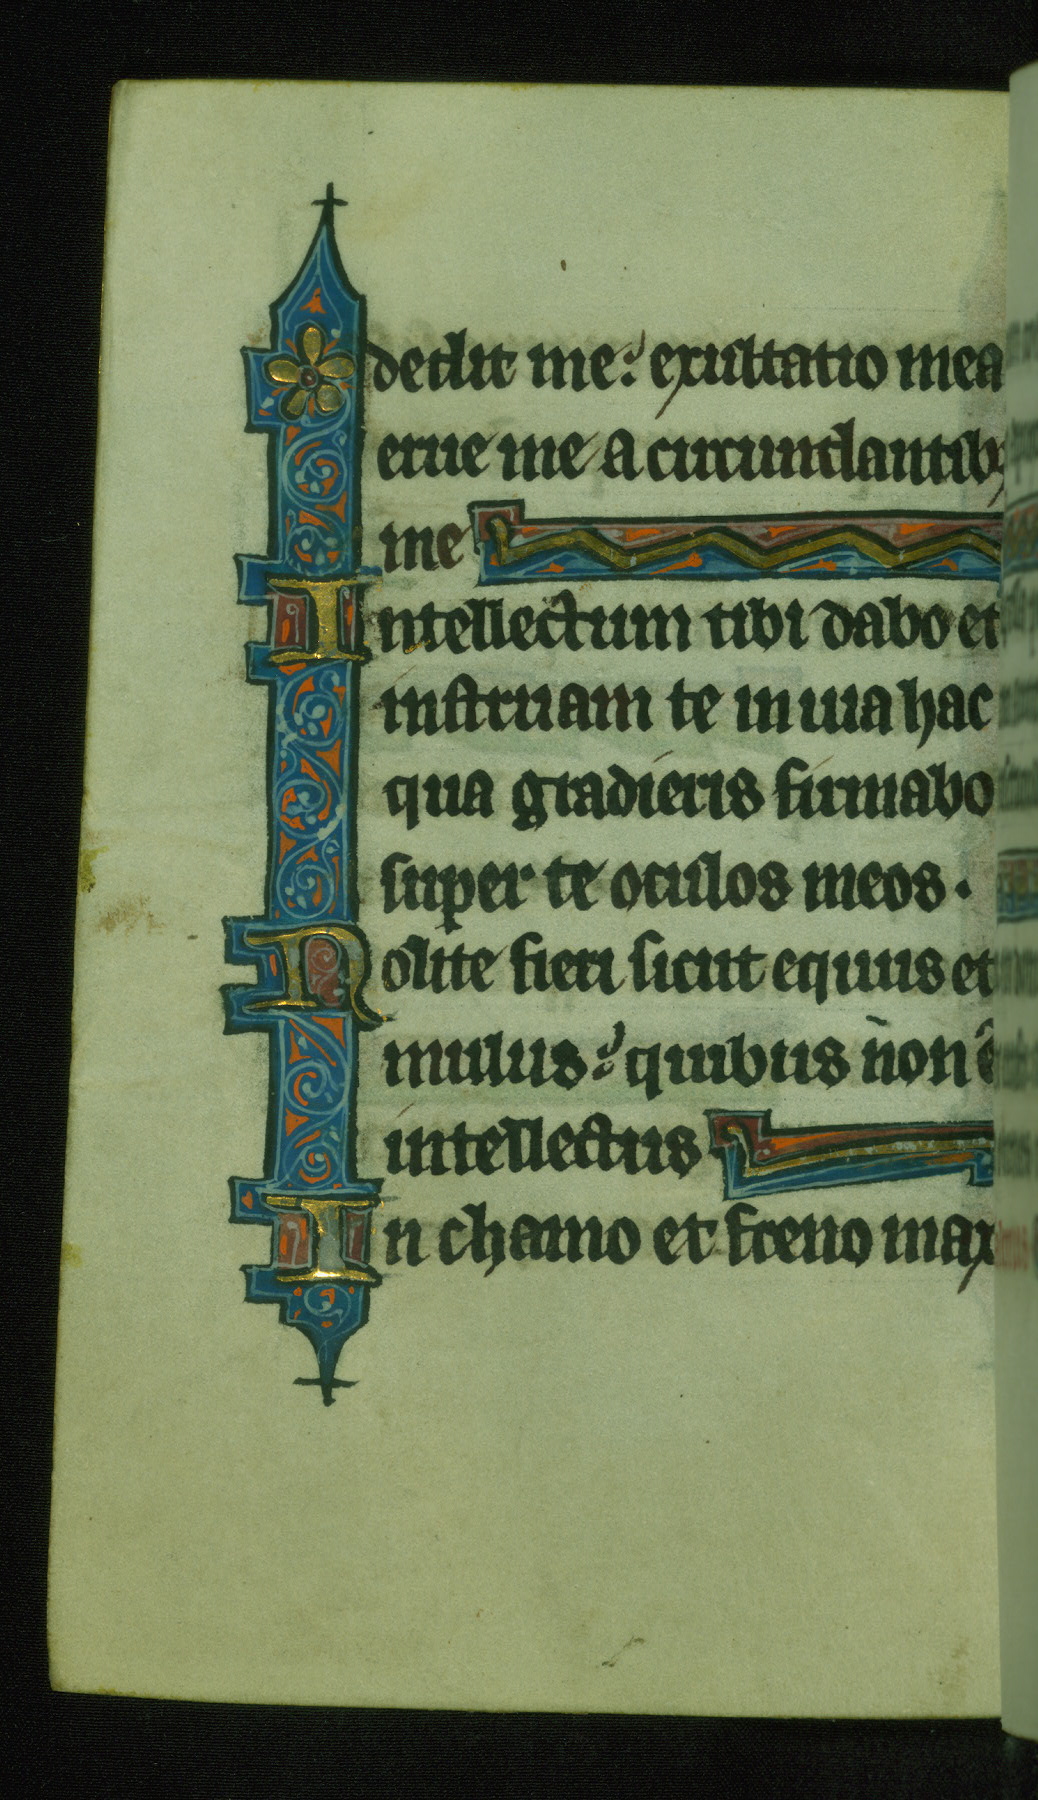 dedit me: exultatio mea
erue me a circundantib;
me
Intellectum tibi dabo et
instruam te in uia hac
qua gradieris firmabo
super te oculos meos.
Nolite fieri sicut equus et
mulus: quibus non ē
intellectus
In chamo et freno max